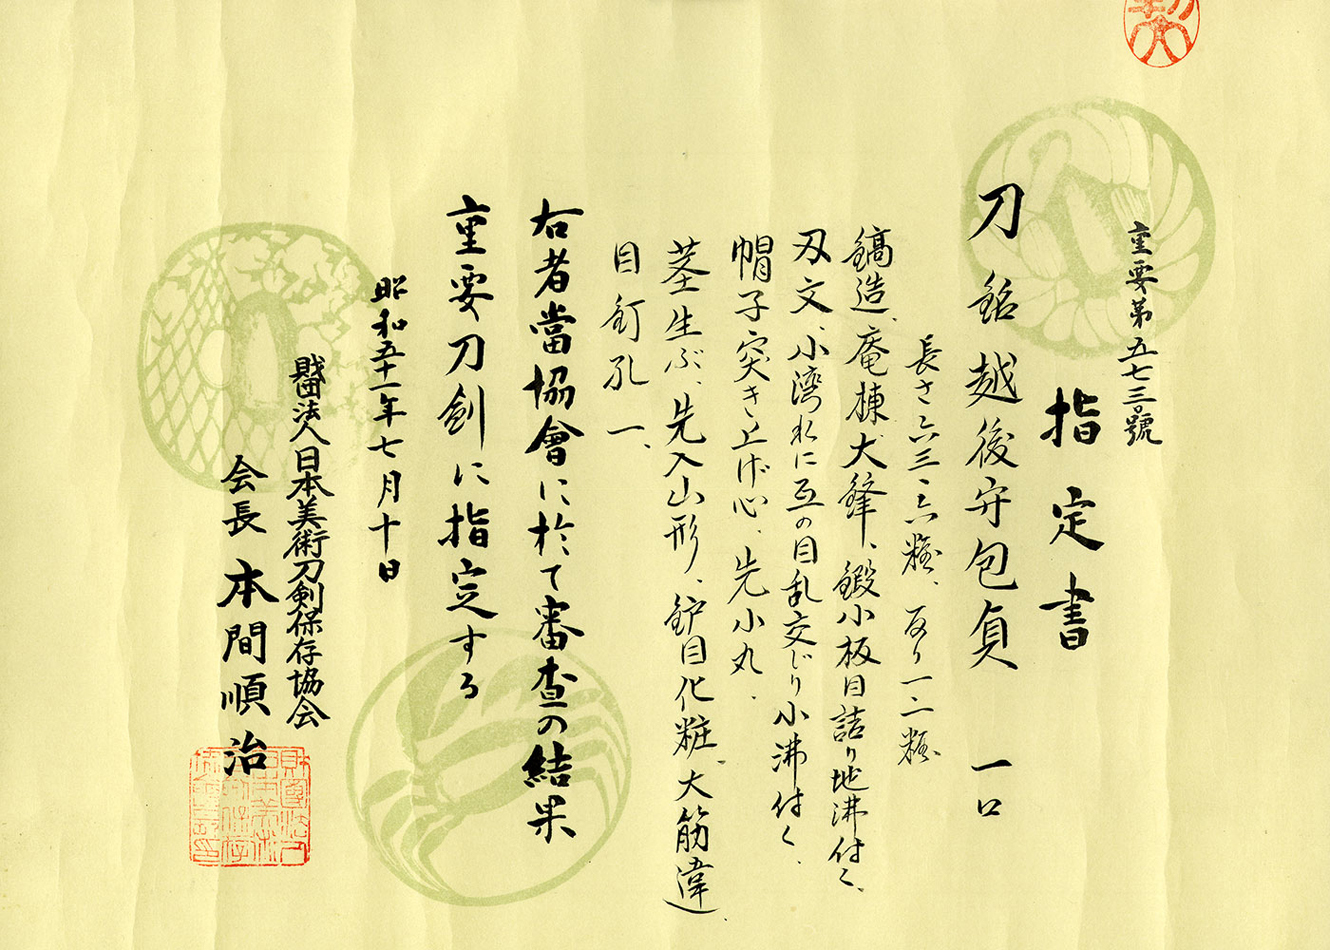 重要第五七三號
指定書
刀 銘 越後守包貞 一口
長さ六三・六糎、反り一・二糎
鎬造、庵棟、大鋒、鍛小板目詰り地沸付く、
刃文、小湾れに互の目乱交じり小沸付く、
帽子突き上げ心、先小丸、
茎生ぶ、先入山形、鈩目化粧大筋違、
目釘孔一、
右者當協會に於て審査の結果
重要刀剣に指定する
昭和五十一年七月十日
財団法人日本美術刀剣保存協会
会長 本間順治